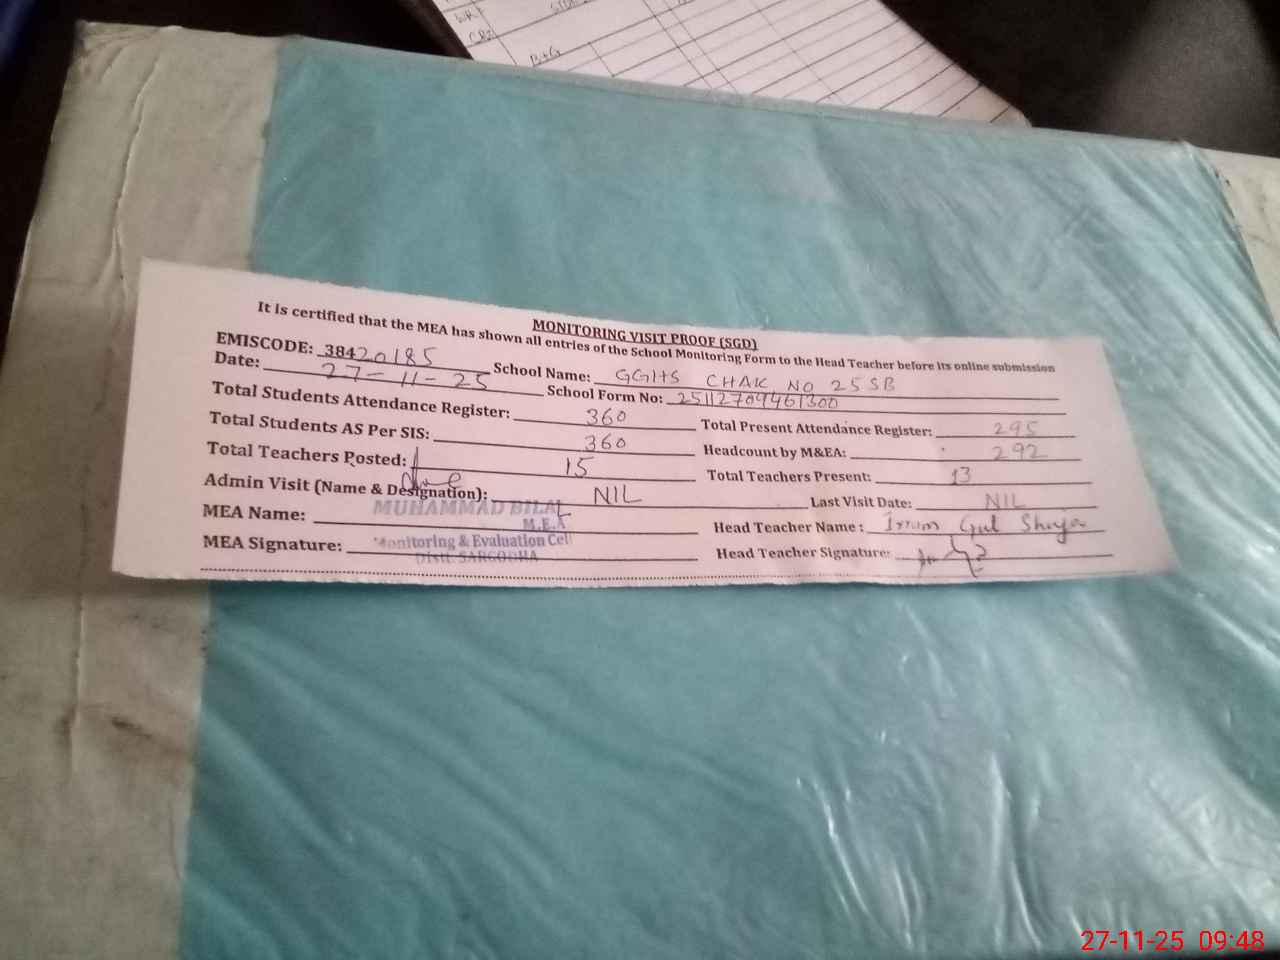 B+G
MONITORING VISIT PROOF (SGD)
It is certified that the MEA has shown all entries of the School Monitoring Form to the Head Teacher before its online submission
EMISCODE: 38420185 School Name: GGHS CHAK NO 25 SB
Date: 27-11-25 School Form No: 25112709461300
Total Students Attendance Register: 360 Total Present Attendance Register: 295
Total Students AS Per SIS: 360 Headcount by M&EA: 292
Total Teachers Posted: 15 Total Teachers Present: 13
Admin Visit (Name & Designation): NIL Last Visit Date: NIL
MEA Name: MUHAMMAD BILAL Head Teacher Name : Irrum Gul Shuja
M.E.A
MEA Signature: Monitoring & Evaluation Cell Head Teacher Signature:
Distt. SARGODHA
27-11-25 09:48